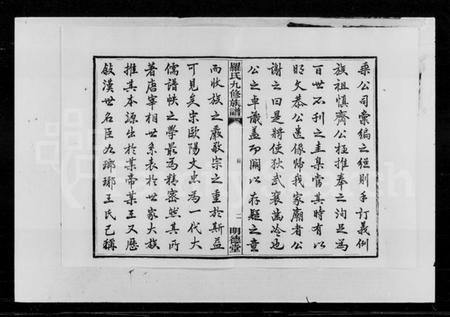 乘公司彙編之经則手訂義例
族祖慎齊公極推奉之洵足為
百世不刊之圭臬當其時有以
明文恭公遺像歸我家廟者公
謝之曰是將使狄武襄齒冷也
公之卓識盖即闕以存疑之意
羅氏九修族譜
二
明德堂
而收族之嚴敬宗之重於斯益
可見矣宋歐陽文忠為一代大
儒譜帙之學最為精密然其所
著唐宰相世系表於世家大族
推其本源出於某帝某王又歷
敍漢世名臣如瑯琊王氏已稱